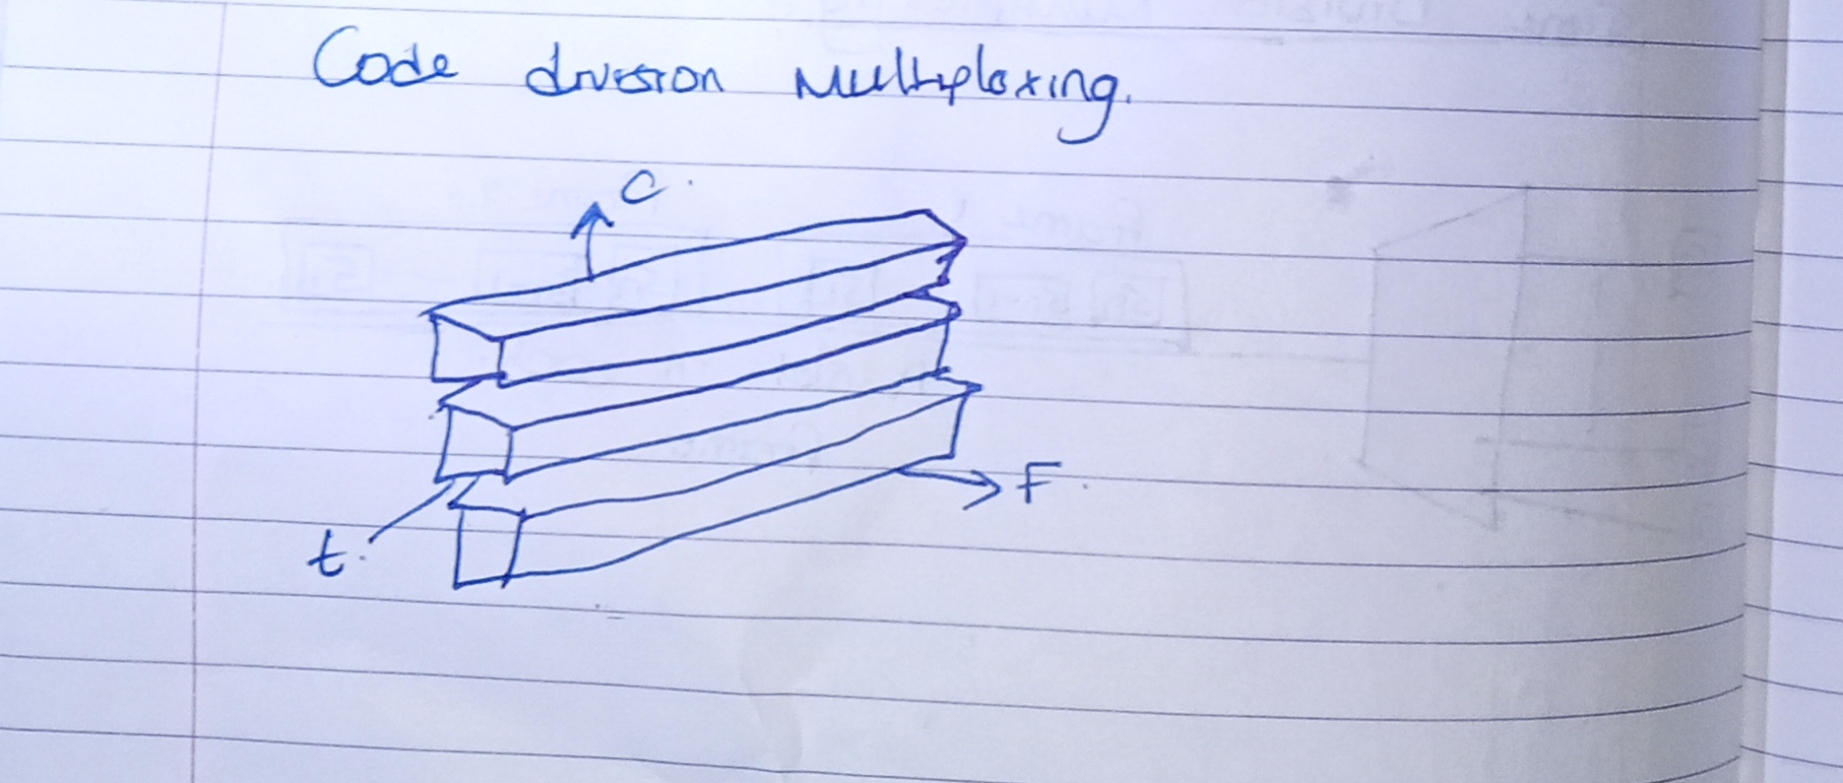 Code division Multiplexing.
C.
F.
t.